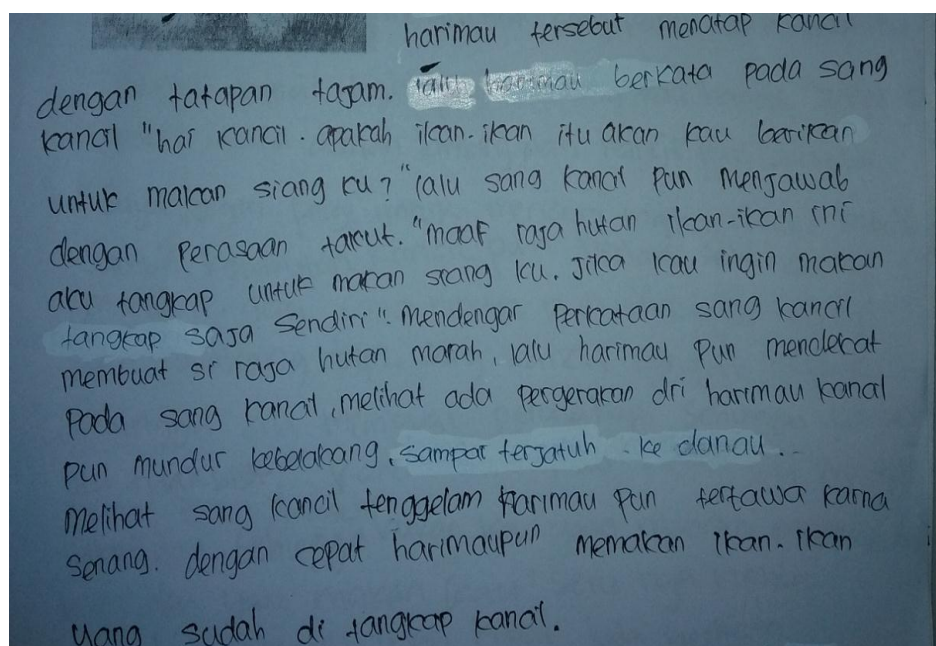 harimau tersebut menatap kancil
dengan tatapan tajam. lalu harimau berkata pada sang
kancil "hai kancil. apakah ikan-ikan itu akan kau berikan
untuk makan siang ku?" lalu sang kancil pun menjawab
dengan perasaan takut. "maaf raja hutan ikan-ikan ini
aku tangkap untuk makan siang ku. Jika kau ingin makan
tangkap saja sendiri". mendengar perkataan sang kancil
membuat si raja hutan marah, lalu harimau pun mendekat
pada sang kancil, melihat ada pergerakan dri harimau kancil
pun mundur kebelakang, sampai terjatuh ke danau..
melihat sang kancil tenggelam harimau pun tertawa karna
senang. dengan cepat harimaupun memakan ikan-ikan
yang sudah di tangkap kancil.